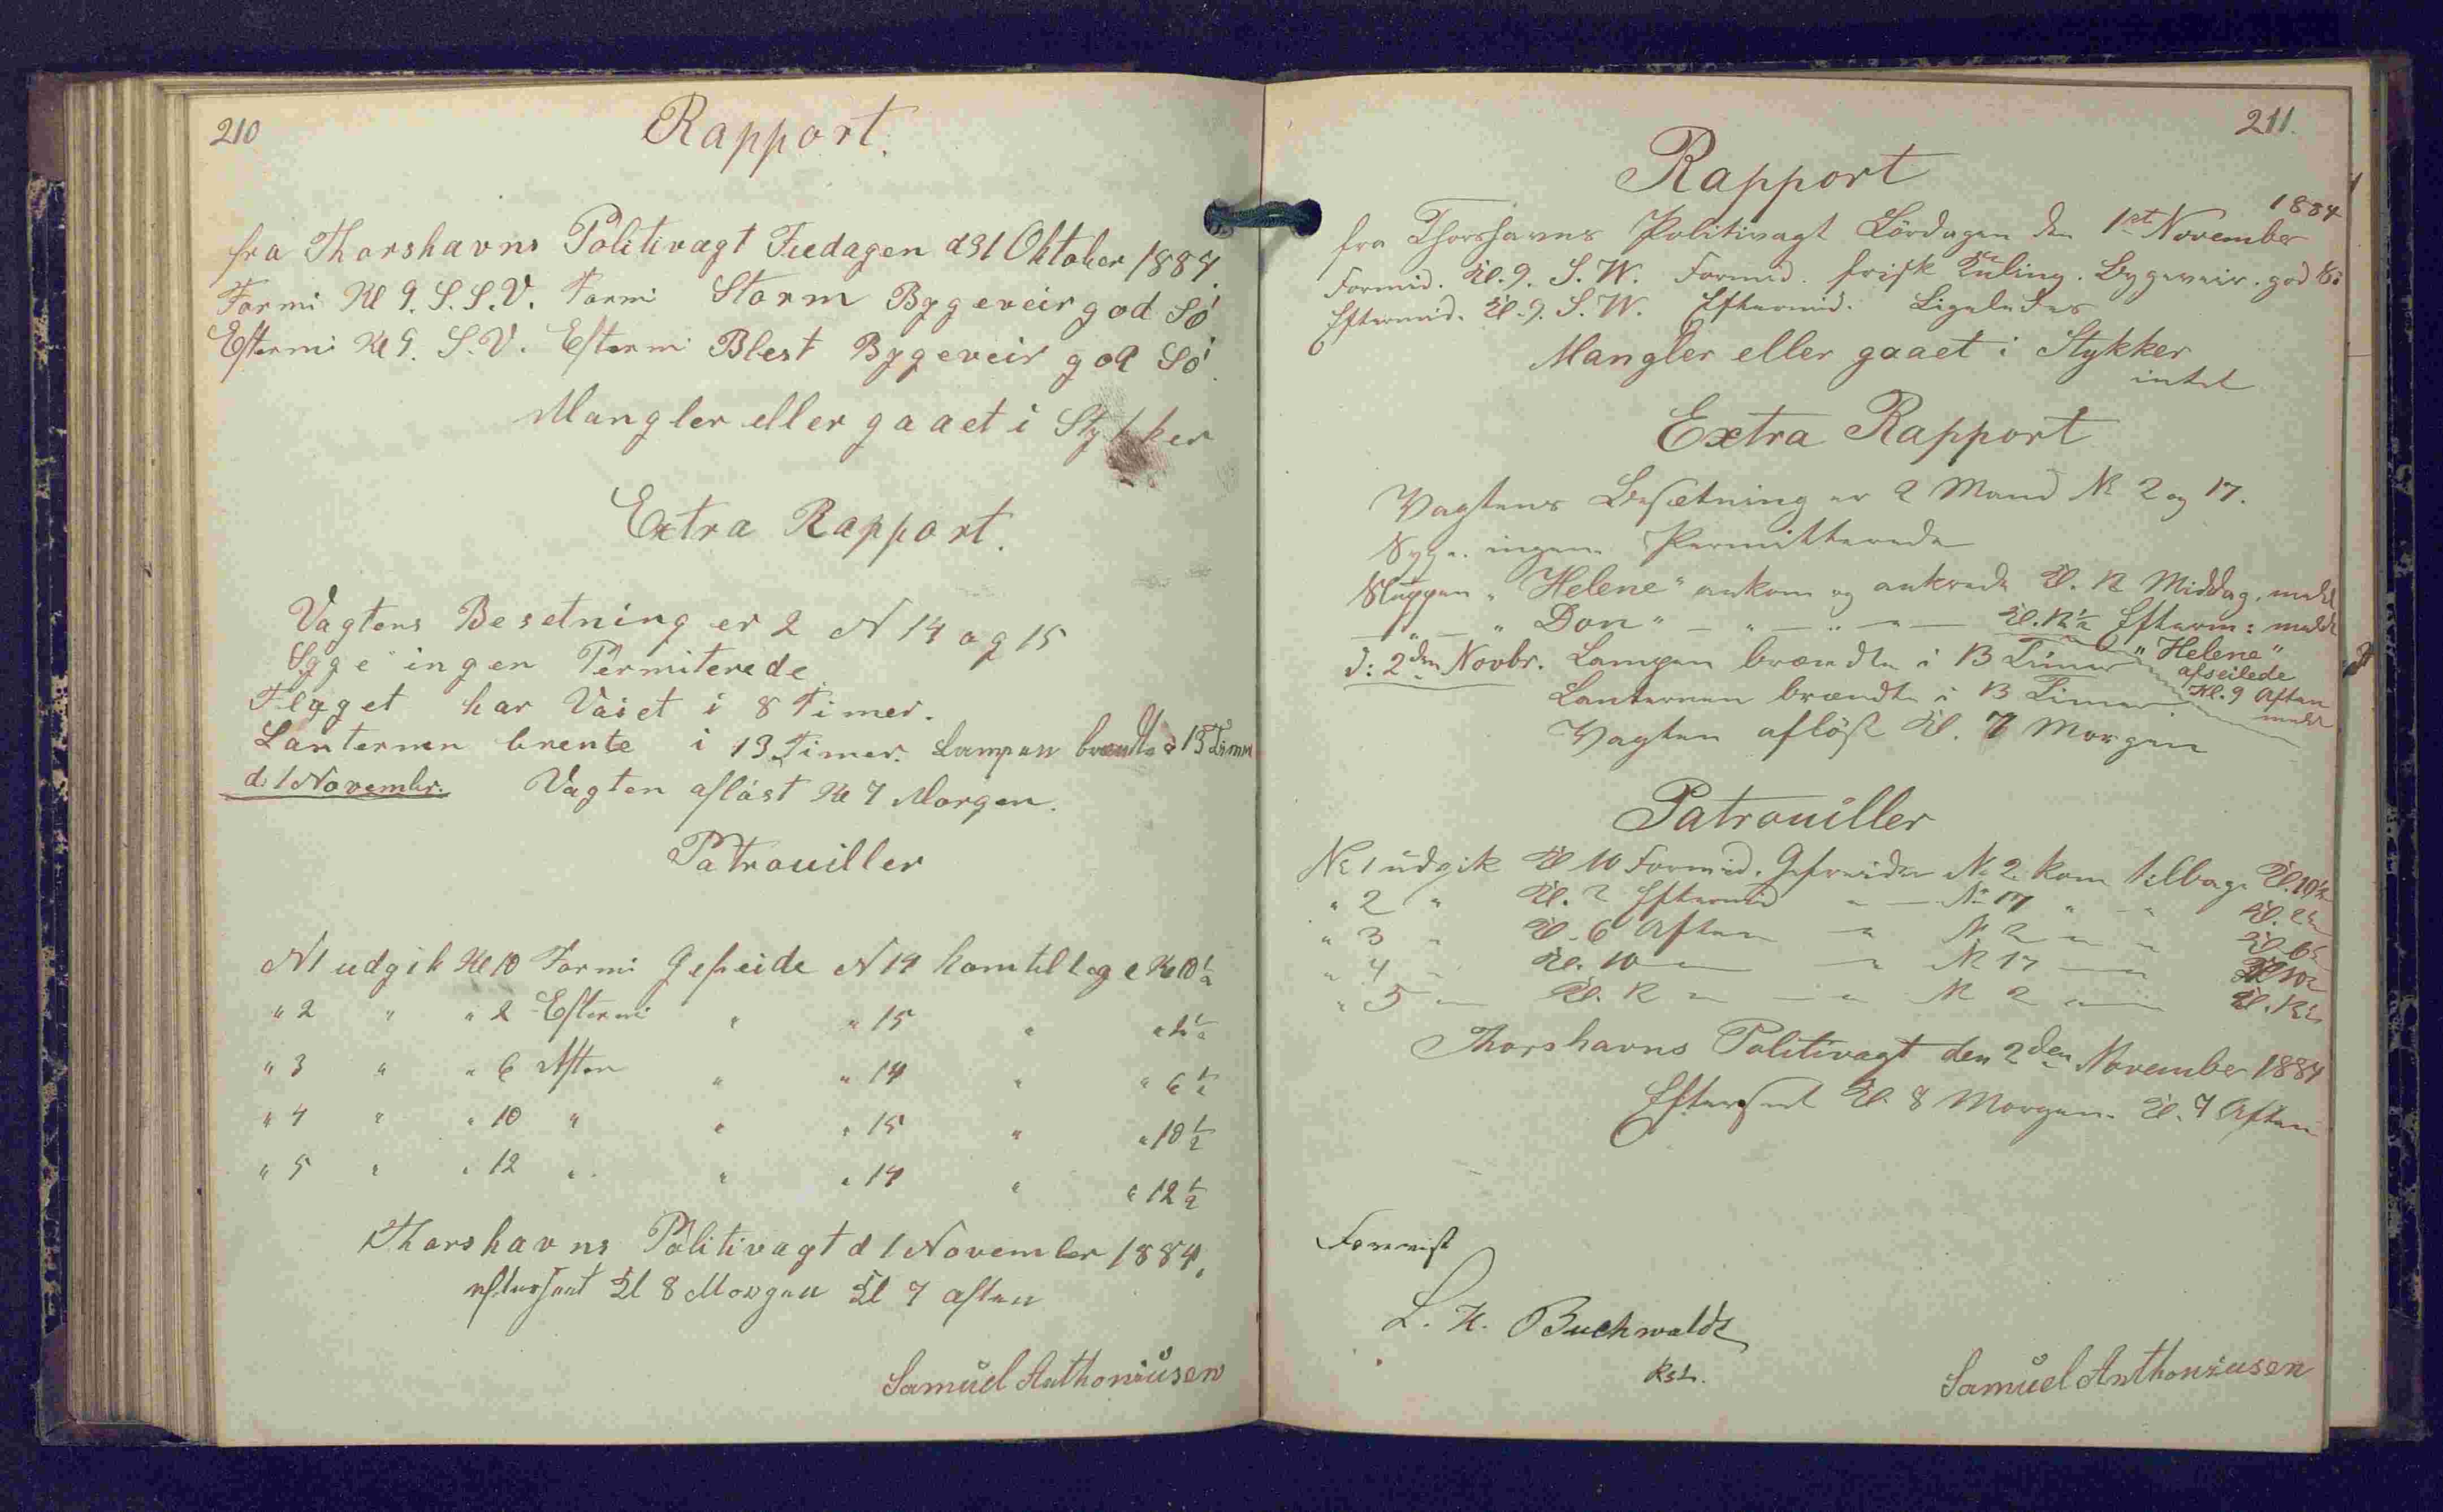 210
Rapport.
fra Thorshavns Politivagt Fredagen d 31 Oktober 1884.
Formi Kl 9. S.S.V. Formi Storm Byggeveir god Sö
Eftermi Kl 9. S.V. Eftermi Blest Byggeveir god Sö.
Mangler eller gaaet i Stykker
Extra Rapport.
Vagtens Besetning er 2 N 14 og 15
Sygge ingen Permiterede
Flaget har Vaiet i 8 Timer.
Lanternen brente i 13 Timer. Lampen brændte i 13 Timer
d: 1 Novembr. Vagten aflöst Kl 7 Morgen.
Patrouiller
N 1 udgik Kl 10 Formi Gefreide N 14 kom tilbage Kl 10 1/2
" 2 " " 2 Eftermi " " 15 " " 2 1/2
" 3 " " 6 Aften " " 14 " " 6 1/2
" 4 " " 10 " " " 15 " " 10 1/2
" 5 " " 12 " " " 14 " " 12 1/2
Thorshavns Politivagt d 1 November 1884.
efterseet Kl 8 Morgen Kl 7 aften
Samuel Anthoniusen
211.
Rapport
1884
fra Thorshavns Politivagt Lördagen den 1st November
Formid. Kl. 9. S.W. Formid. frisk Kuling. Bygeveir. god Sö
Eftermid. Kl. 9. S.W. Eftermid. Ligeledes
Mangler eller gaaet i Stykker
intet
Extra Rapport
Vagtens Besætning er 2 Mand No 2 og 17.
Syge. ingen Permitterede
Sluppen "Helene" ankom og ankrede Kl. 12 Middag. meldt
— " — " Don " — " — " — " — Kl. 12 1/2 Efterm: meldt
"Helene"
afseilede
Kl. 9 Aften
meldt
d: 2den Novbr. Lampen brændte i 13 Timer
Lanternen brændte i 13 Timer
Vagten aflöst Kl. 7 Morgen
Patrouiller
No 1 udgik Kl 10 Formid. Gefreider No 2 kom tilbage Kl. 10 1/2
" 2 " Kl. 2 Eftermid " — No 17 " — " Kl. 2 1/2
" 3 " Kl. 6 Aften " No 2 " " Kl. 6 1/2
" 4 " Kl. 10 " " No 17 " Kl 10 1/2
" 5 " Kl. 12 " — " No 2 " Kl. 12 1/2
Thorshavns Politivagt den 2den November 1884
Efterseet Kl. 8 Morgen. Kl. 7 Aften
Foreviist
L. H. Buchwaldt
Samuel Anthoniusen